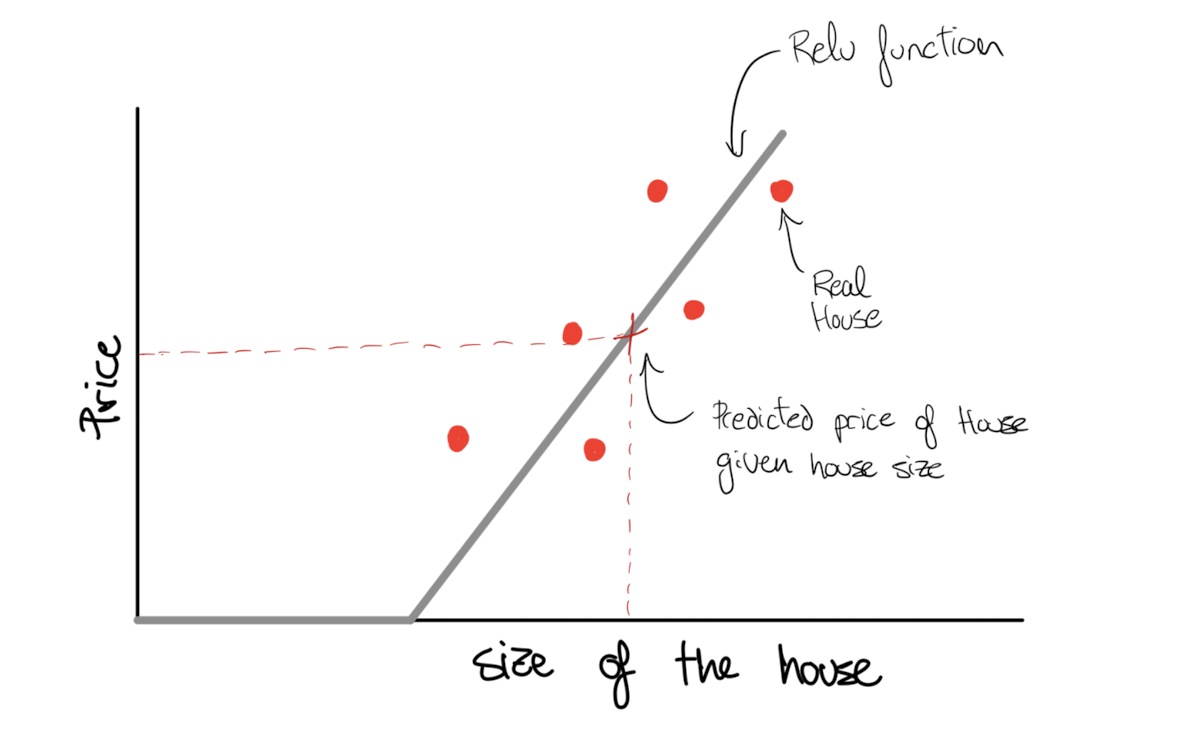 Relu function
Real
House
Price
Predicted price of House
given house size
size of the house